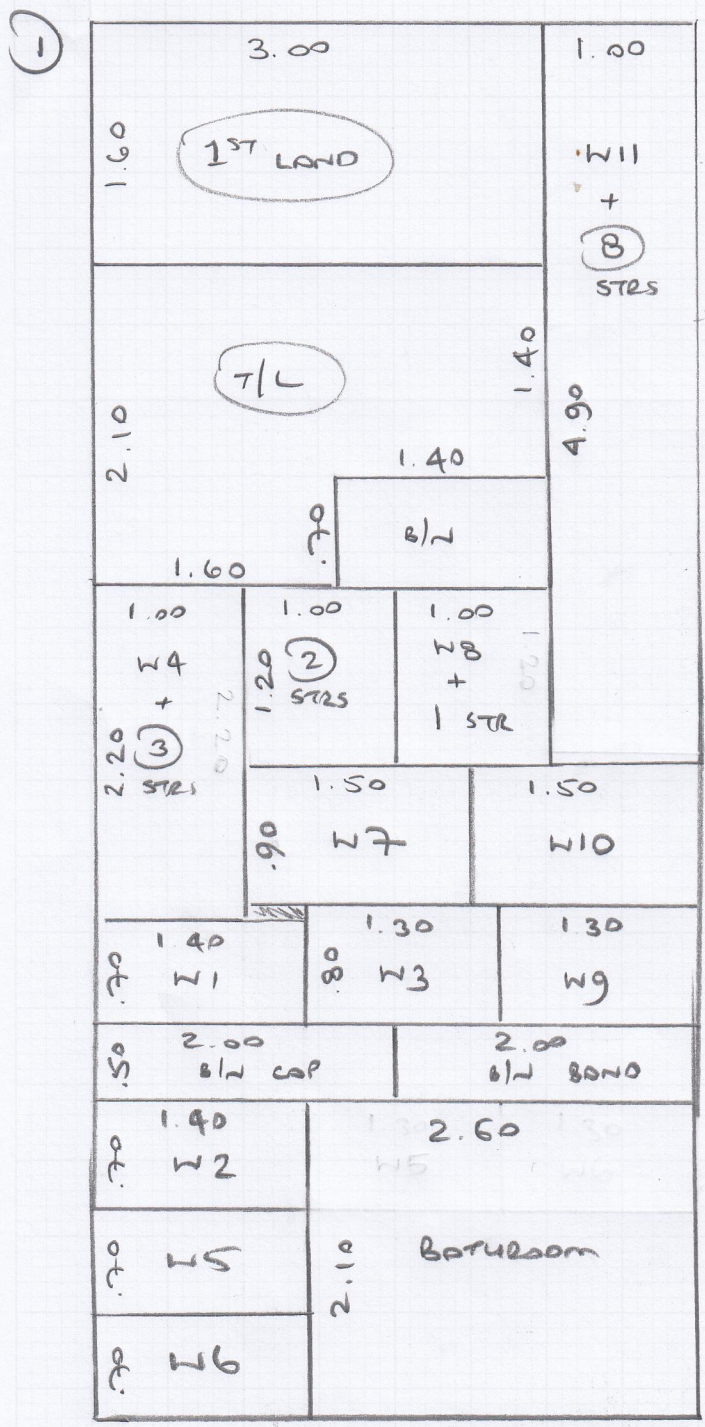 1
3.00
1.00
1.60
1ST LAND
Σ11
+
8
STRS
T/L
2.10
1.40
4.90
1.40
.70
B/N
1.60
1.00
Σ4
+
3
STRS
2.20
2.20
1.00
1.20
2
STRS
1.00
Σ8
+
1 STR
1.20
1.50
.90
Σ7
1.50
Σ10
1.40
.70
Σ1
1.30
.80
Σ3
1.30
Σ9
.50
2.00
B/N CAP
2.00
B/N BAND
1.40
.70
Σ2
2.60
1.30
Σ5
1.30
Σ6
.70
Σ5
2.10
BATHROOM
.70
Σ6